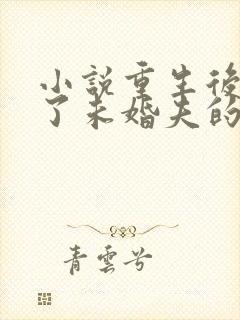 小說重生後
了未婚夫的
青雲兮